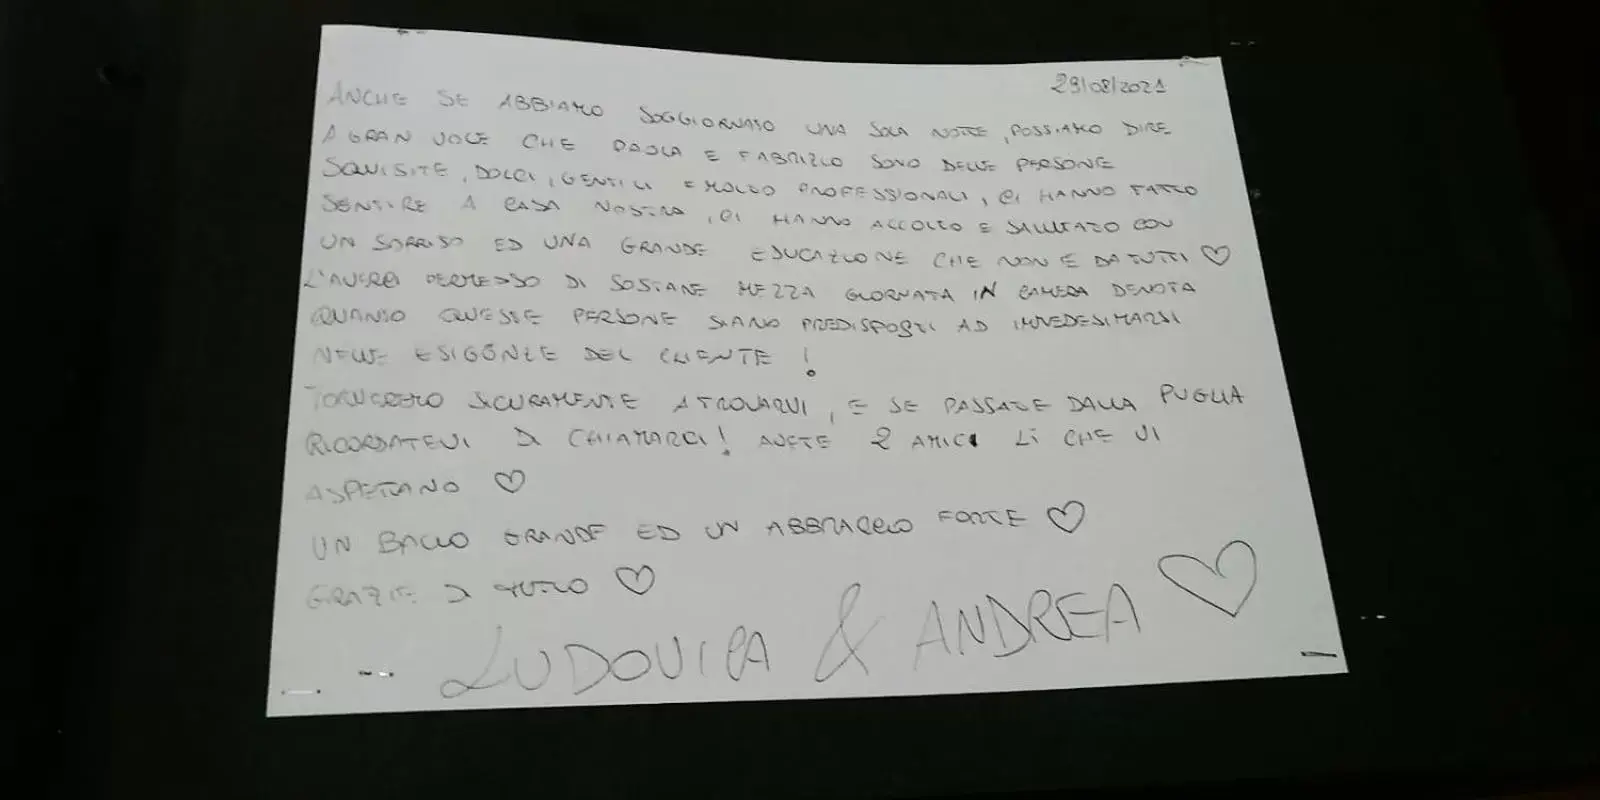 29/08/2021
ANCHE SE ABBIAMO SOGGIORNATO UNA SOLA NOTTE, POSSIAMO DIRE
A GRAN VOCE CHE PAOLA E FABRIZIO SONO DELLE PERSONE
SQUISITE, DOLCI, GENTILI E MOLTO PROFESSIONALI, CI HANNO FATTO
SENTIRE A CASA NOSTRA, CI HANNO ACCOLTO E SALUTATO CON
UN SORRISO ED UNA GRANDE EDUCAZIONE CHE NON E DA TUTTI ♡
L'AVERCI PERMESSO DI SOSTARE MEZZA GIORNATA IN CAMERA DENOTA
QUANTO QUESTE PERSONE SIANO PREDISPOSTI AD IMMEDESIMARSI
NELLE ESIGENZE DEL CLIENTE !
TORNEREMO SICURAMENTE A TROVARVI, E SE PASSATE DALLA PUGLIA
RICORDATEVI DI CHIAMARCI! AVETE 2 AMICI LÌ CHE VI
ASPETTANO ♡
UN BACIO GRANDE ED UN ABBRACCIO FORTE ♡
GRAZIE DI TUTTO ♡
LUDOVICA & ANDREA ♡